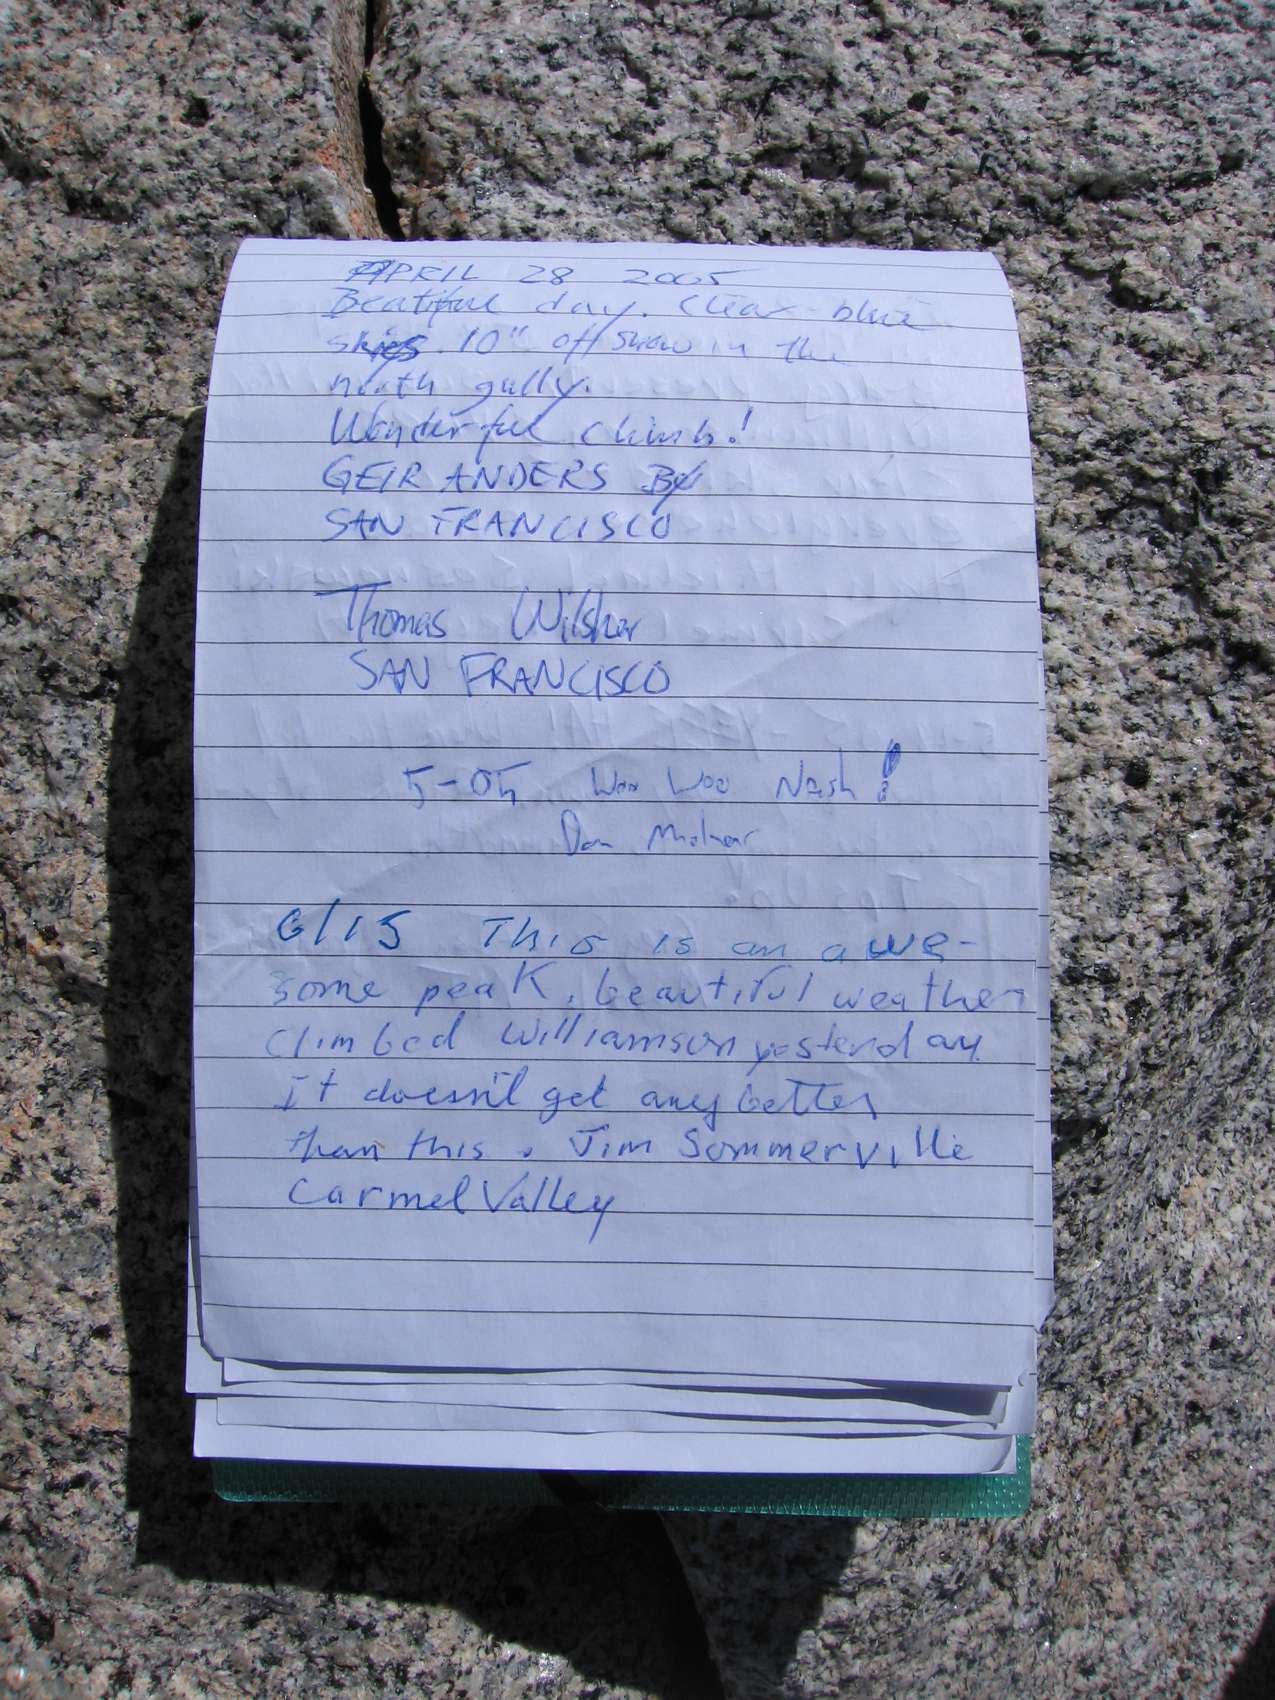 APRIL 28 2005
Beatiful day. Clear blue
skies. 10" off snow in the
north gully.
Wonderful climb!
GEIR ANDERS
SAN FRANCISCO
Thomas
SAN FRANCISCO
5-05 Woo Woo Nash!
Dan
6/15 This is an awe-
some peak, beautiful weather
climbed Williamson yesterday.
It doesn't get any better
than this. Jim Sommerville
Carmel Valley